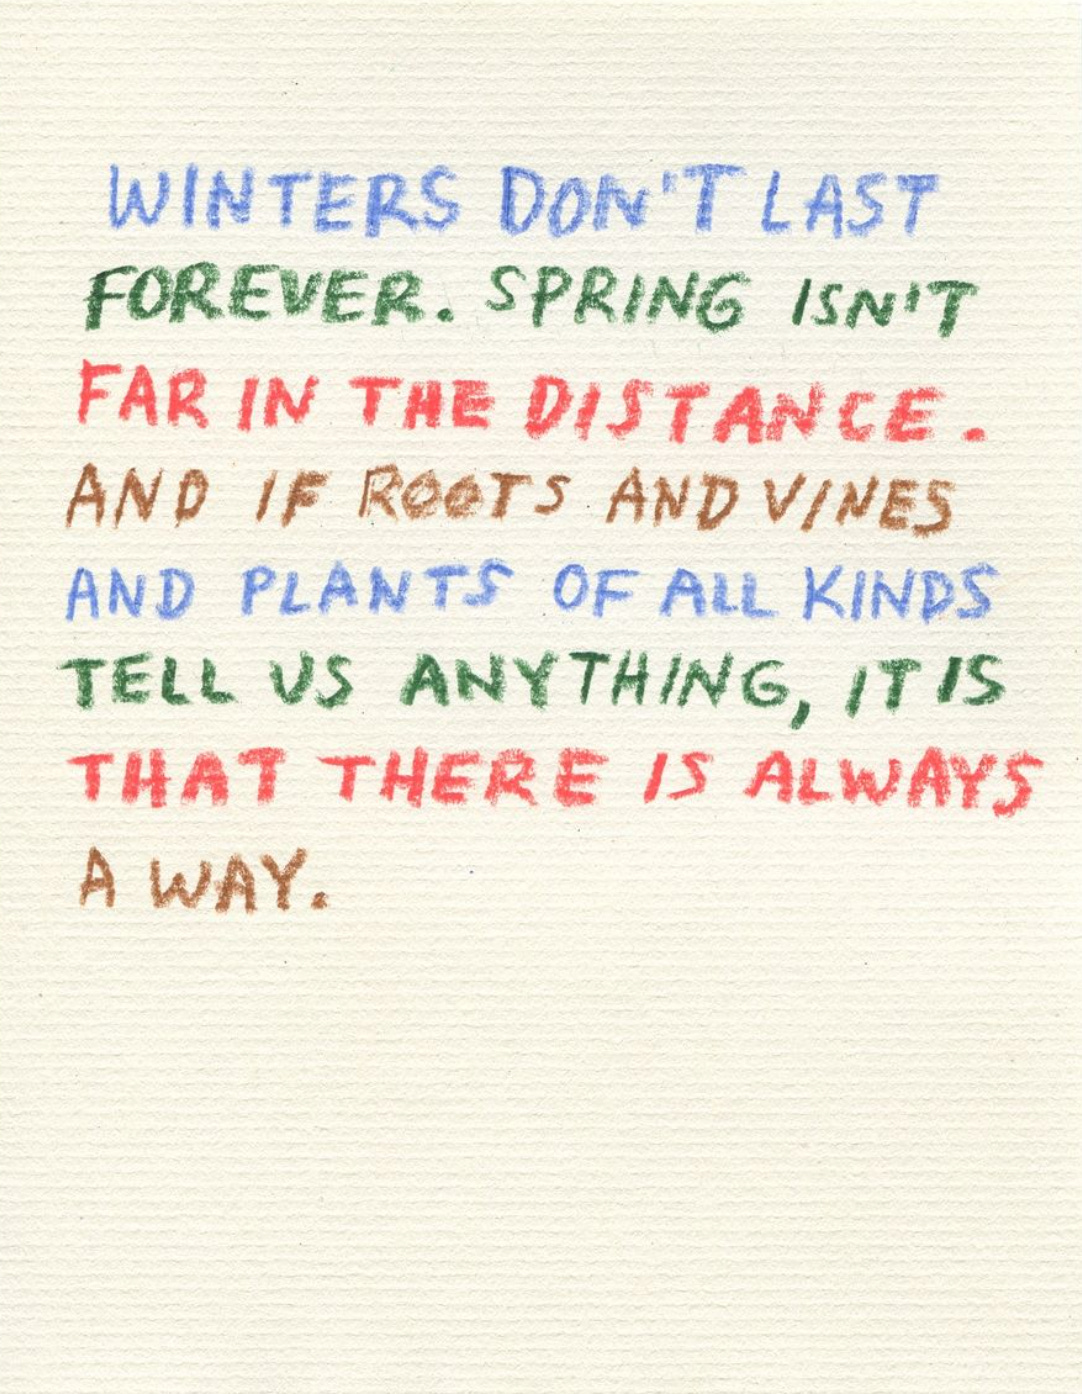 WINTERS DON'T LAST
FOREVER. SPRING ISN'T
FAR IN THE DISTANCE.
AND IF ROOTS AND VINES
AND PLANTS OF ALL KINDS
TELL US ANYTHING, IT IS
THAT THERE IS ALWAYS
A WAY.